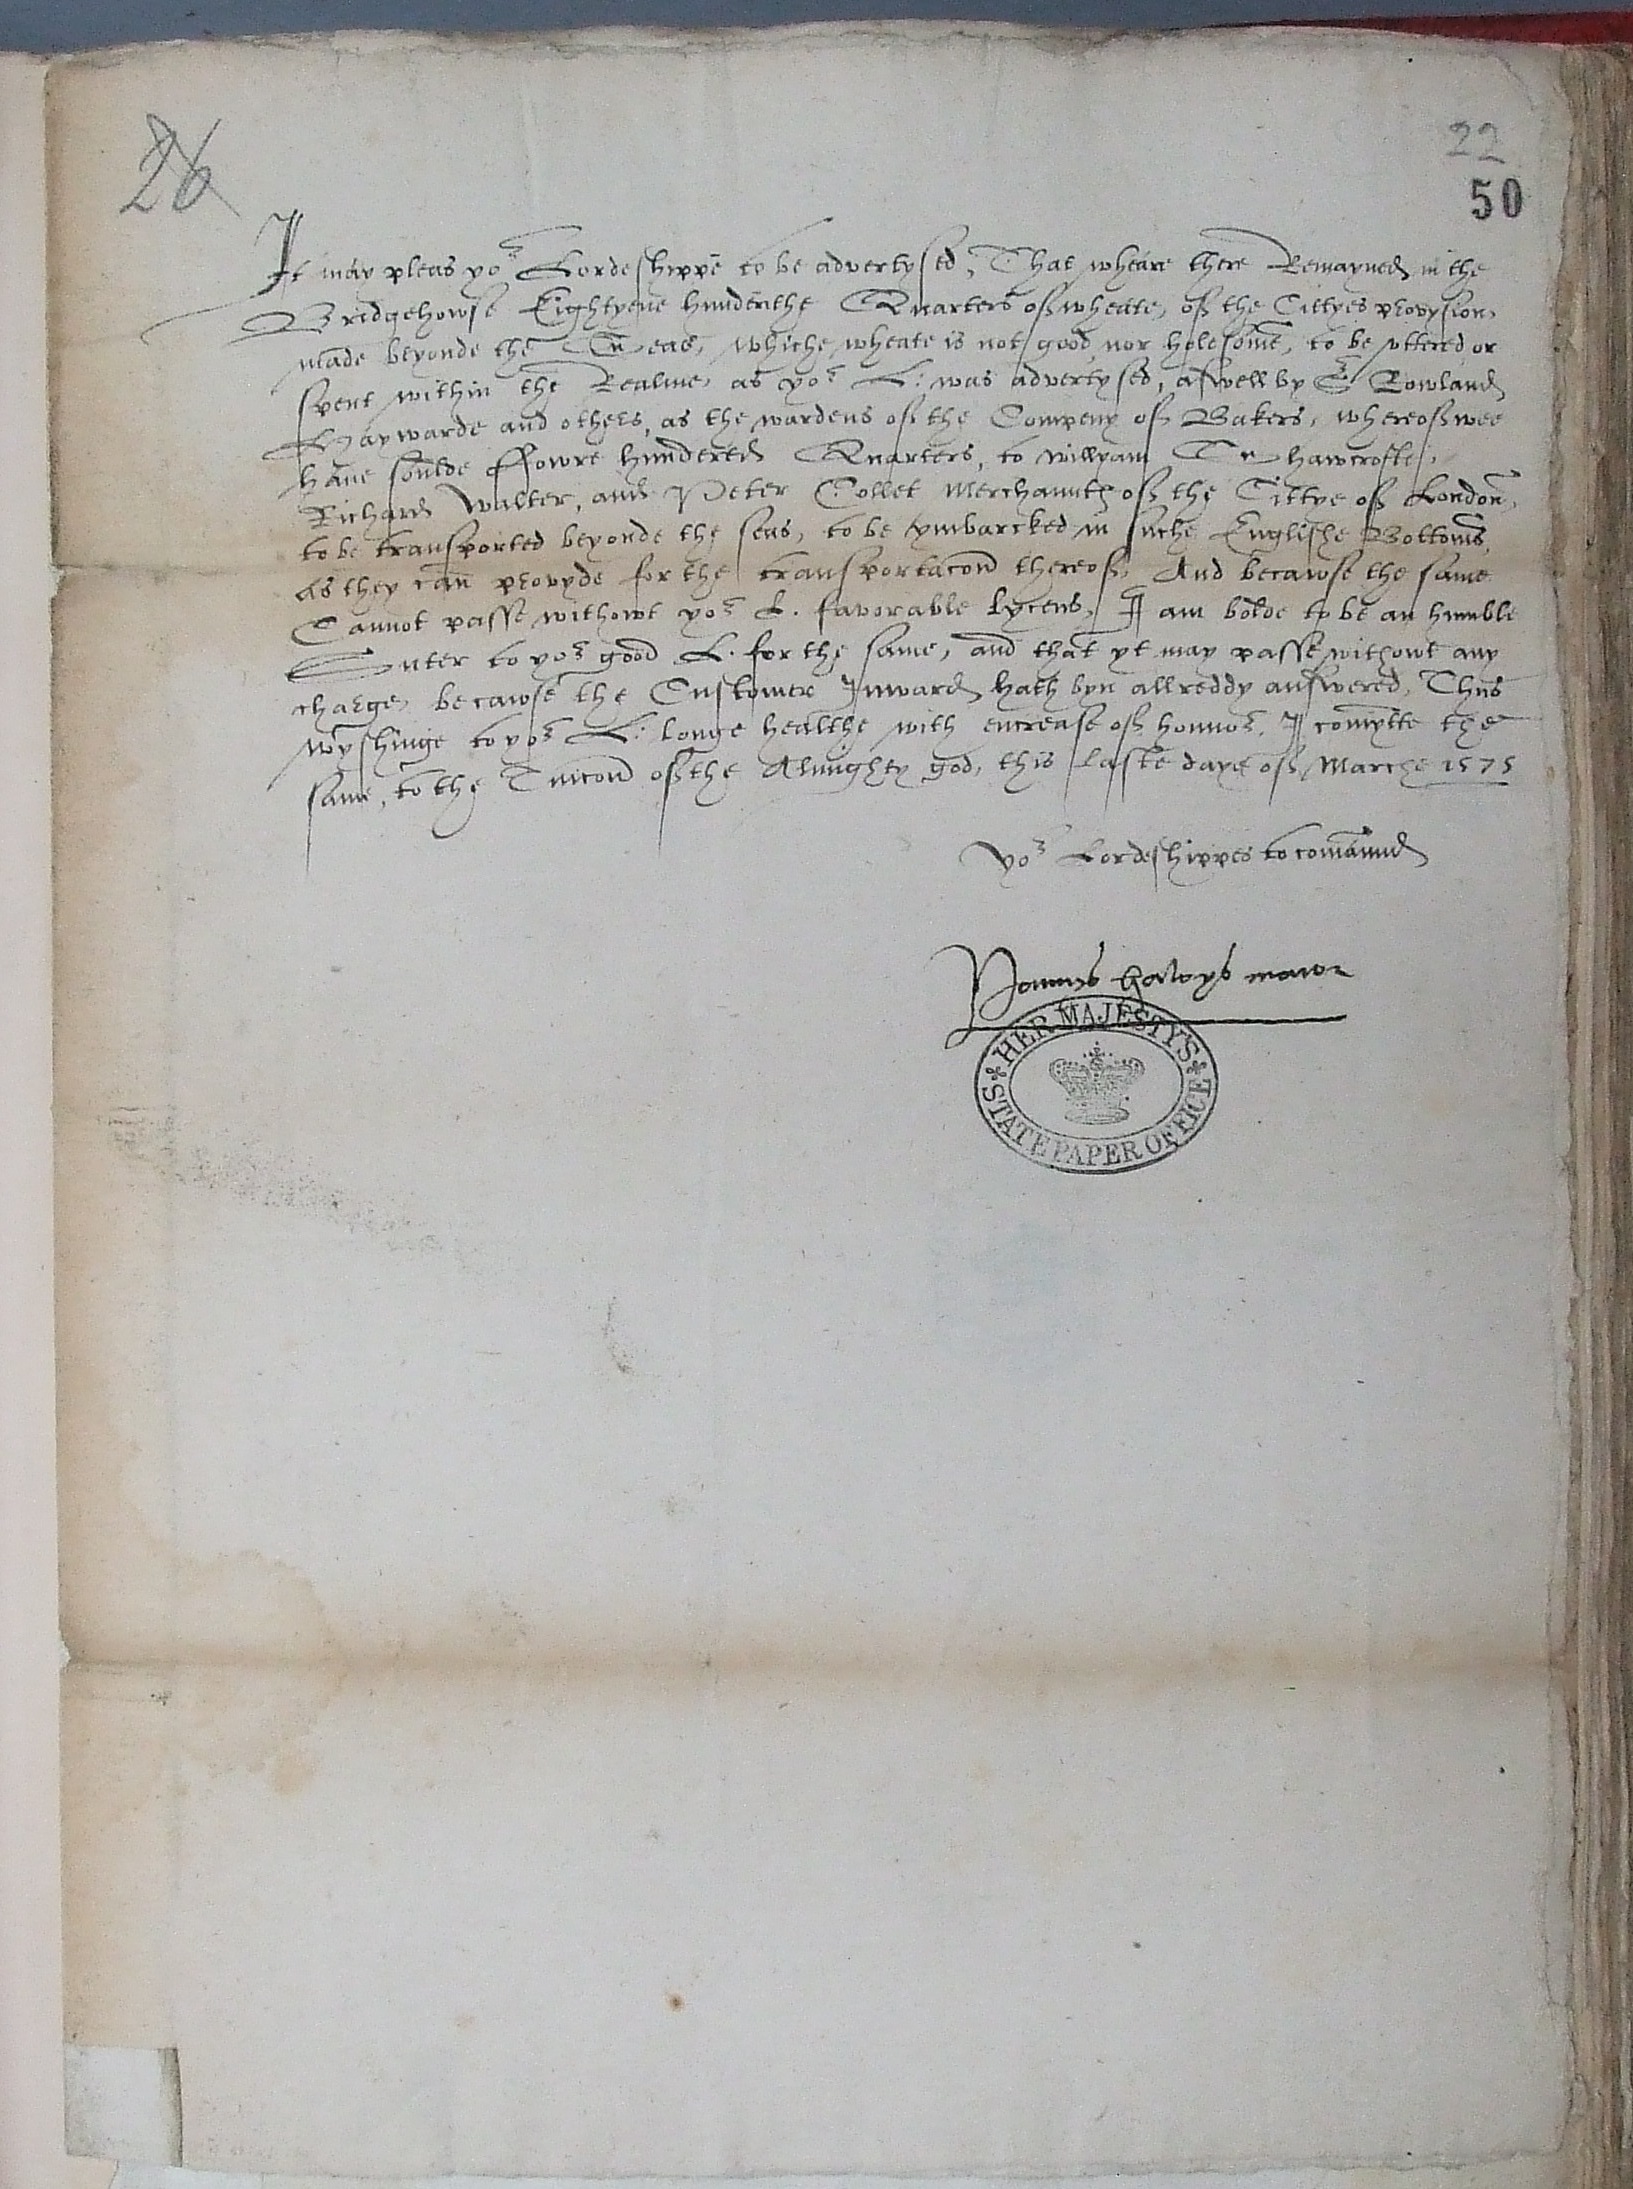 26
22
50
It may pleas yor Lordeshippe to be advertysed, That wheare there Remayned in the
Bridgehowse Eightyene hunderthe Quarters of wheate, of the Cittyes provysion,
made beyonde the Seas, whiche wheate is not good nor holesome, to be uttered or
spent within the Realme, as yor L: was advertysed, aswell by Sr Rowland
Haywarde and others, as the wardens of the Compeny of Bakers, whereof wee
have soulde ffowre hundered Quarters, to Willyam Shawcrofte,
Richard Walter, and Peter Collet Merchaunts of the Cittye of London,
to be transported beyonde the seas, to be ymbarcked in suche Englishe Bottoms,
as they can provyde for the transportacon thereof, And becawse the same
Cannot passe withowt yor L. favorable lycens, I am bolde to be an humble
Suter to yor good L. for the same, and that yt may passe withowt any
charge, becawse the Customer Inward hath byn allreddy answered, Thus
wyshinge to yor L: longe healthe with encrease of honnor, I comytte the
same, to the Tuicon of the Almighty god, this laste daye of Marche 1575
yor Lordeshippes to comaund
hawys maior
HER MAJESTY'S
STATE PAPER OFFICE